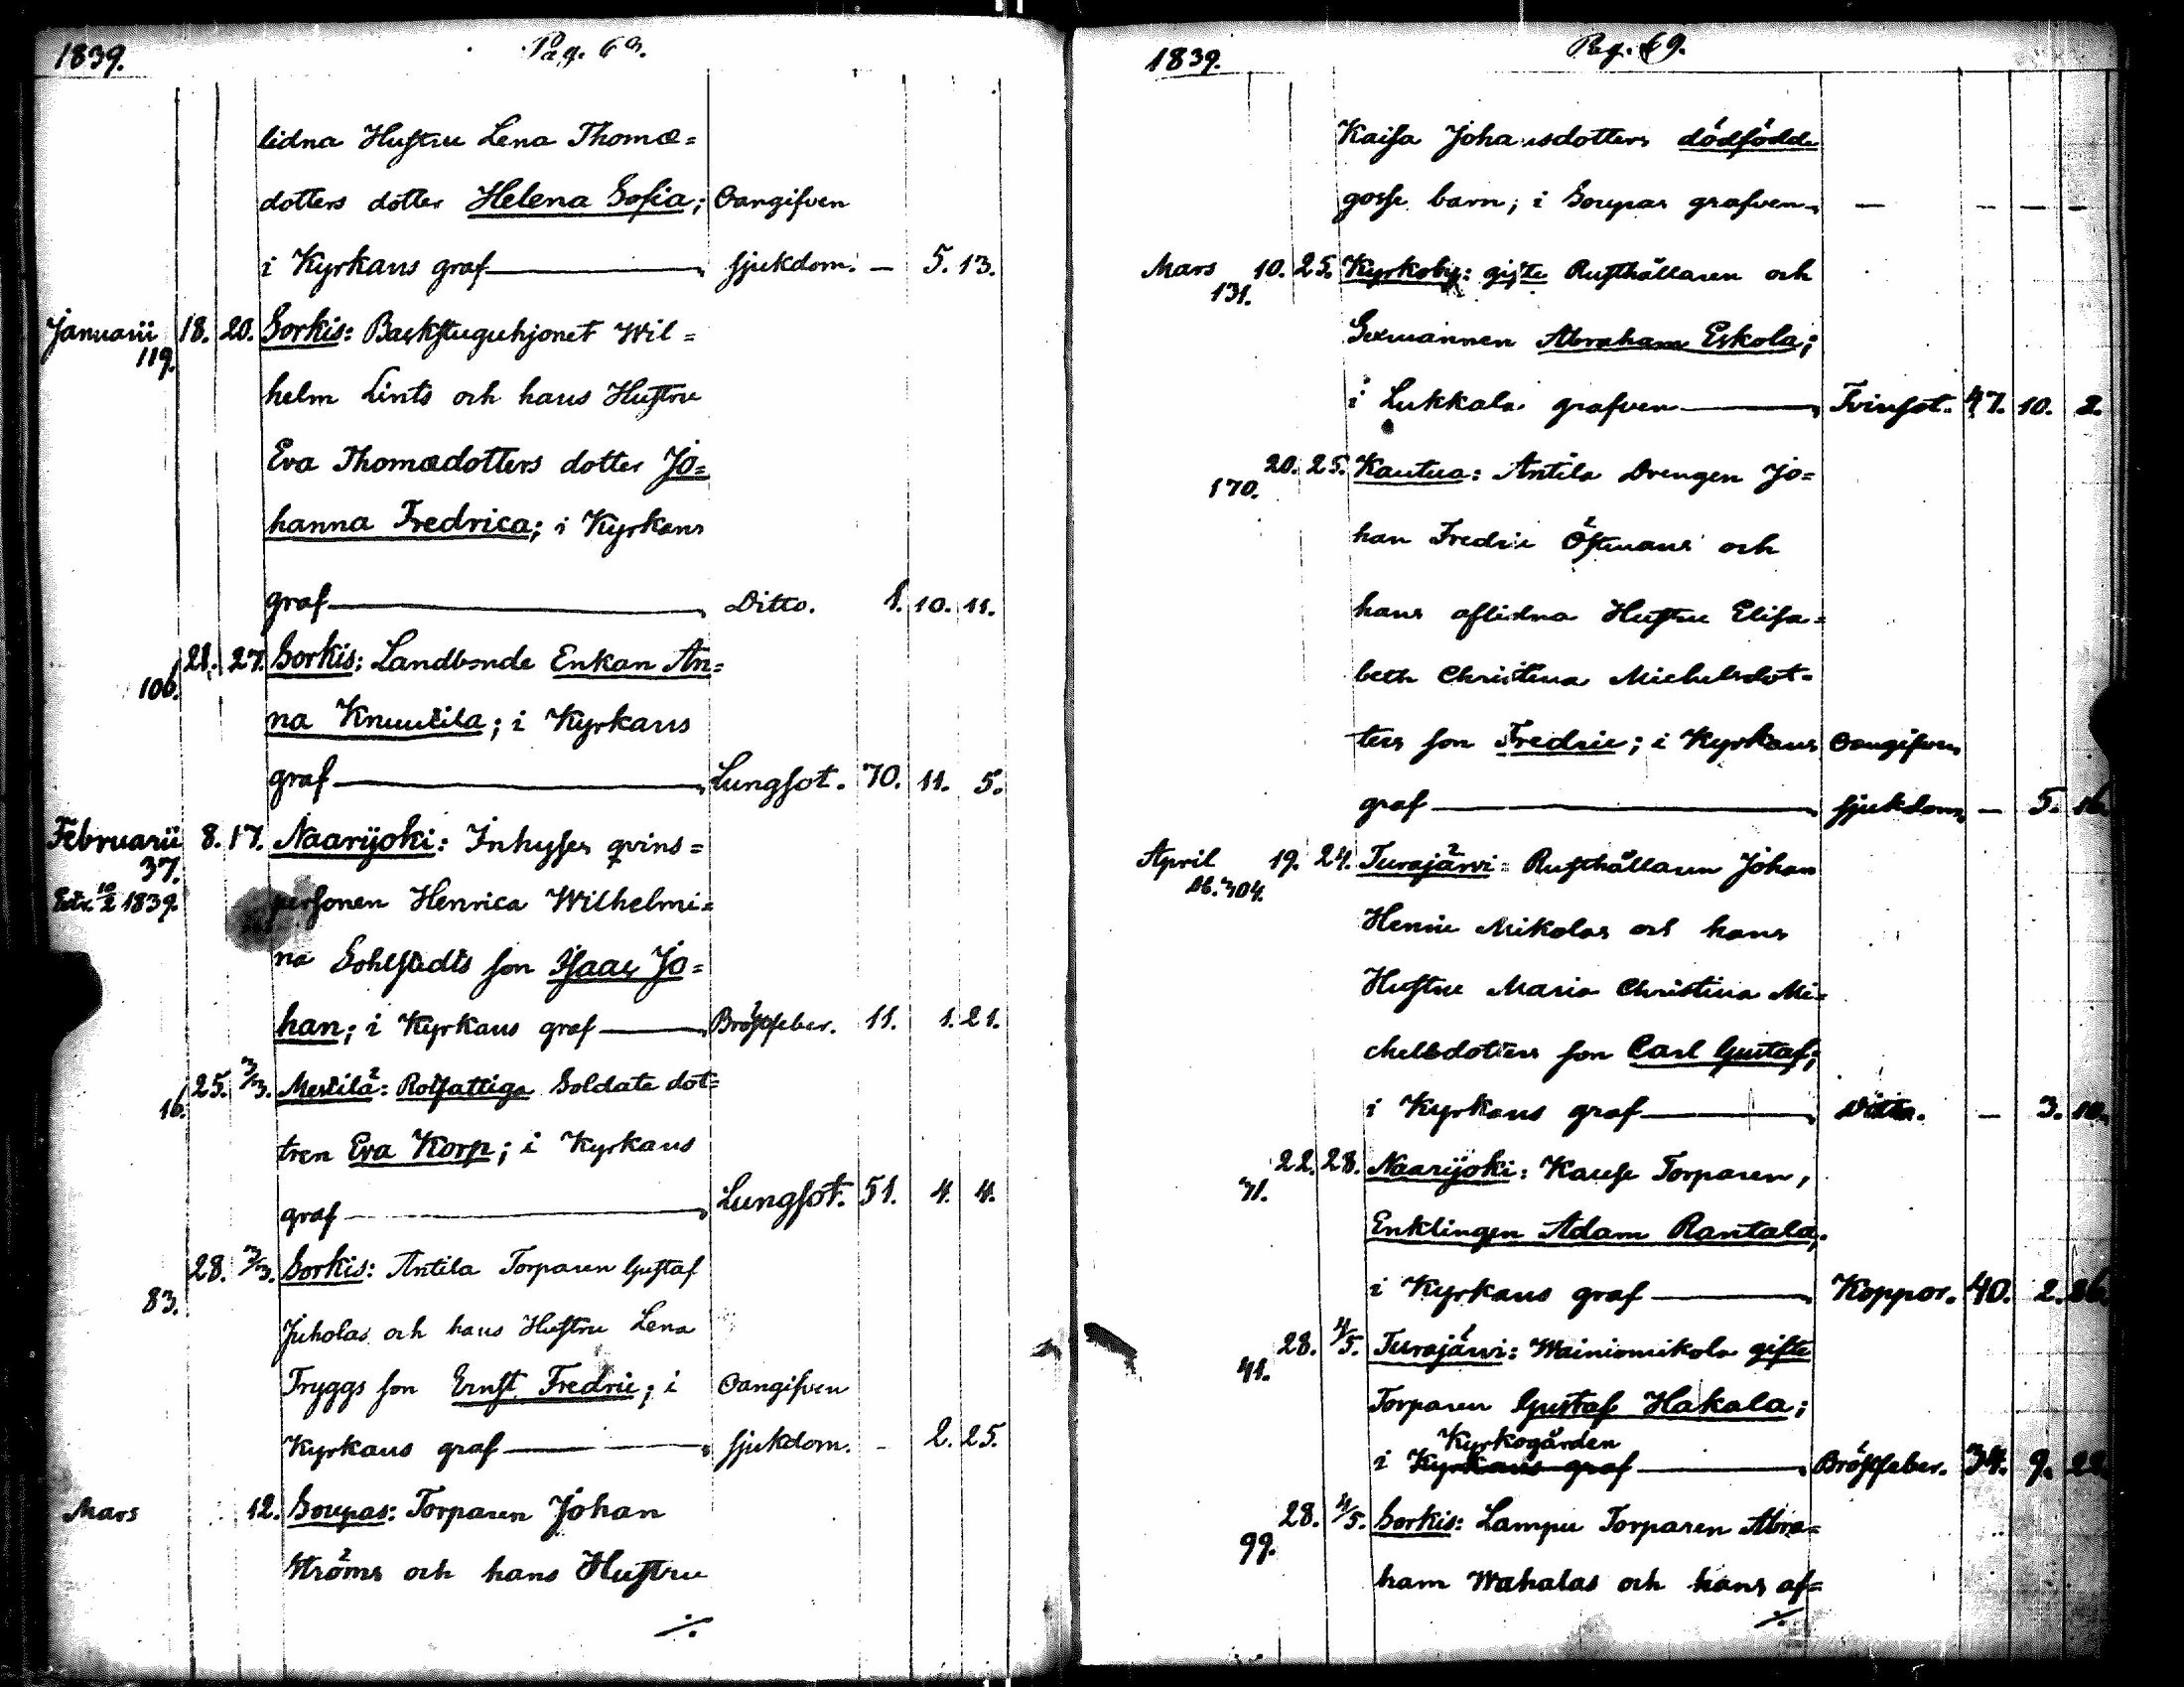 1839. Pag. 68.
lidna Hustru Lena Thomæ=
dotters dotter Helena Sofia; Oangifven
i Kyrkans graf sjukdom. — 5. 13.
Januarii 18. 20. Sorkis: Backstuguhjonet Wil=
119.
helm Lints och hans Hustru
Eva Thomædotters dotter Jo=
hanna Fredrica; i Kyrkans
graf Ditto. 1. 10. 11.
21. 27. Sorkis: Landbonde Enkan An=
106.
na Knuutila; i Kyrkans
graf Lungsot. 70. 11. 5.
Februarii 8. 17. Naarijoki: Inhyses qvins=
37.
10/2 1839. personen Henrica Wilhelmi=
na Sohlstedts son Isaac Jo=
han; i Kyrkans graf Bröstfeber. 11. 1. 21.
25. 3/3. Mestilä: Rotfattiga Soldate dot=
16.
tren Eva Korp; i Kyrkans
graf Lungsot. 51. 4. 4.
28. 3/3. Sorkis: Antila Torparen Gustaf
83.
Juholas och hans Hustru Lena
Tryggs son Ernst Fredric; i Oangifven
Kyrkans graf sjukdom. - 2. 25.
Mars 12. Soupas: Torparen Johan
Ströms och hans Hustru
./.
1839. Pag. 69.
Kaisa Johansdotters dödfödde
gosse barn; i Soupas grafven — — — —
Mars 10. 25. Kyrkoby: gifte Rusthållaren och
131.
Sexmannen Abraham Eskola;
i Lukkala grafven Tvinsot. 47. 10. 2.
20. 25. Kautua: Antila Drengen Jo=
170.
han Fredric Östmans och
hans aflidna Hustru Elisa=
beth Christina Michelsdot=
ters son Fredric; i Kyrkans Oangifven
graf sjukdom — 5. 16.
April 19. 24. Turajärvi: Rusthållaren Johan
304.
Henric Mikolas och hans
Hustru Maria Christina Mi=
chelsdotters son Carl Gustaf;
i Kyrkans graf Ditto. — 3. 10.
22. 28. Naarijoki: Kause Torparen,
71.
Enklingen Adam Rantala;
i Kyrkans graf Koppor. 40. 2. 26.
28. 4/5. Turajärvi: Wainiomikola gifte
41.
Torparen Gustaf Hakala;
Kyrkogården
i Kyrkans graf Bröstfeber. 34. 9. 22.
28. 4/5. Sorkis: Lampu Torparen Abra=
99.
ham Wahalas och hans af=
./.